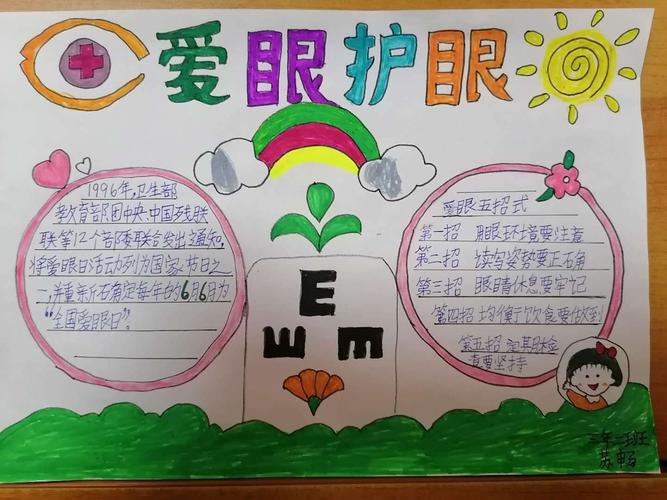 爱眼护眼
1996年,卫生部
教育部团中央中国残联
联等12个部委联合发出通知,
将爱眼日活动列为国家节日之
一,并重新确定每年的6月6日为
“全国爱眼日”。
E
E
E
爱眼五招式
第一招 用眼环境要注意
第二招 读写姿势要正确
第三招 眼睛休息要牢记
第四招 均衡饮食要做到
第五招 定期检
查要坚持
三年二班
苏畅